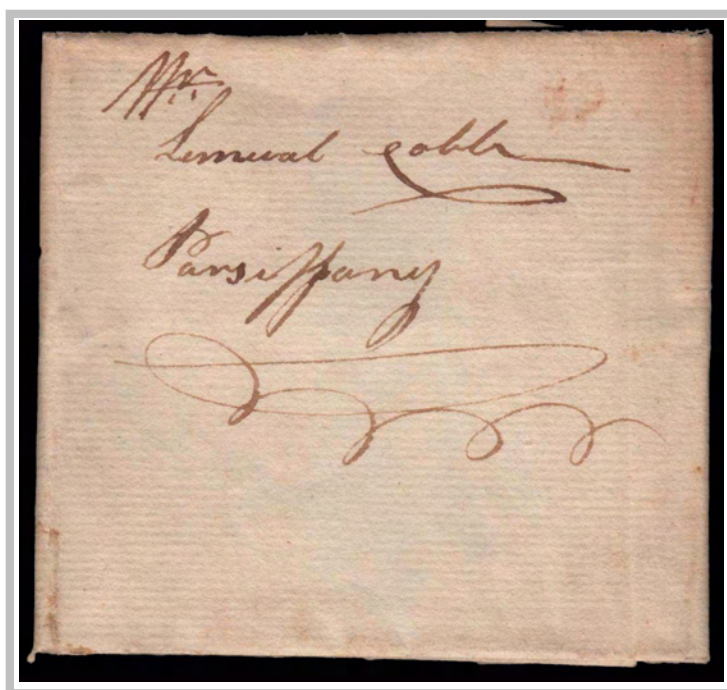 Mr.
Lemual Cobb
Parsippany